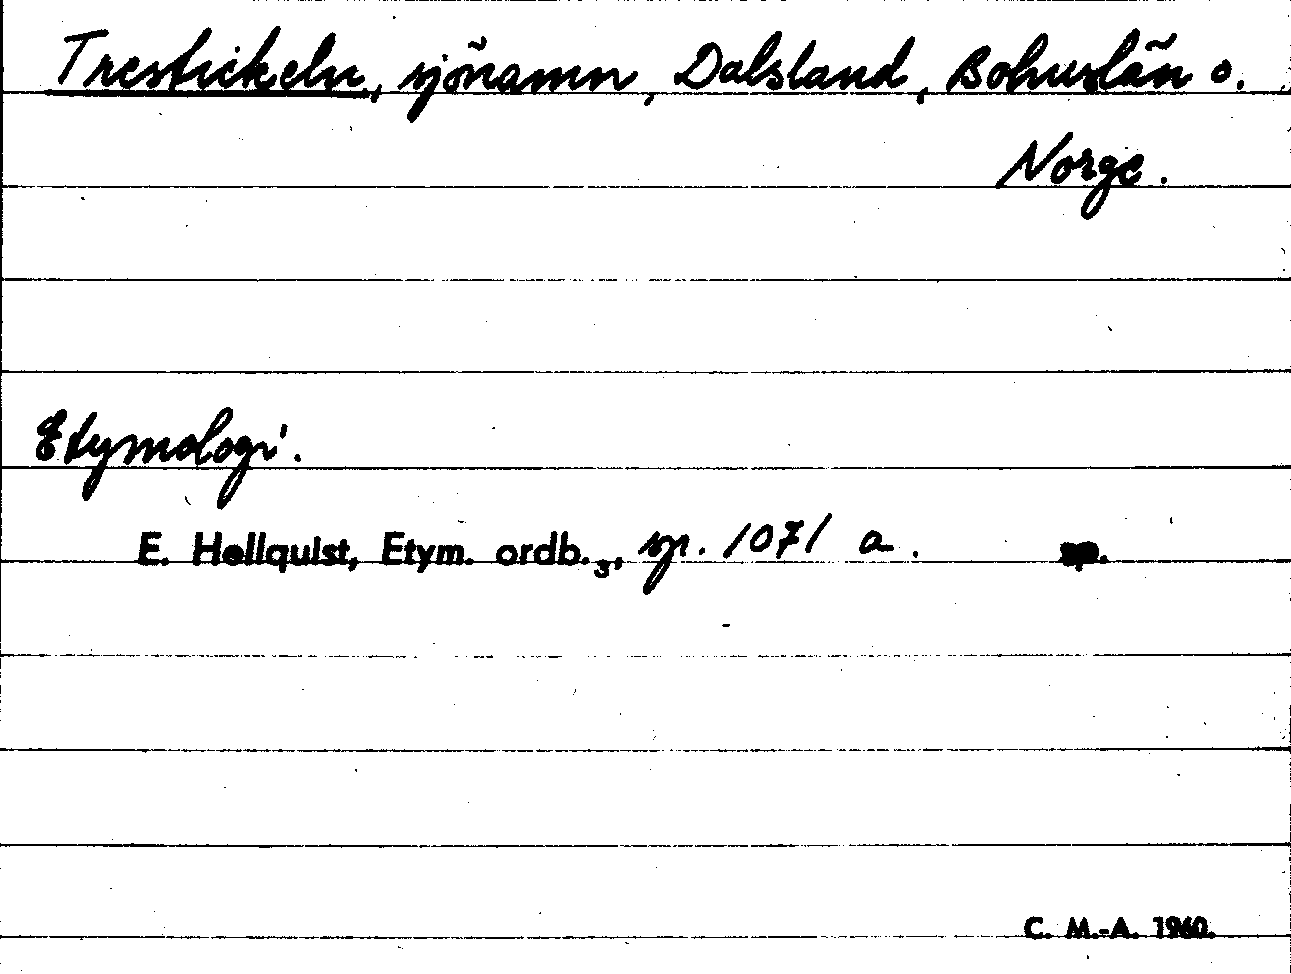 Trestickeln, sjönamn, Dalsland, Bohuslän o.
Norge.
Etymologi.
E. Hellquist, Etym. ordb. 3, sp. 1071 a. sp.
C. M.-A. 1960.